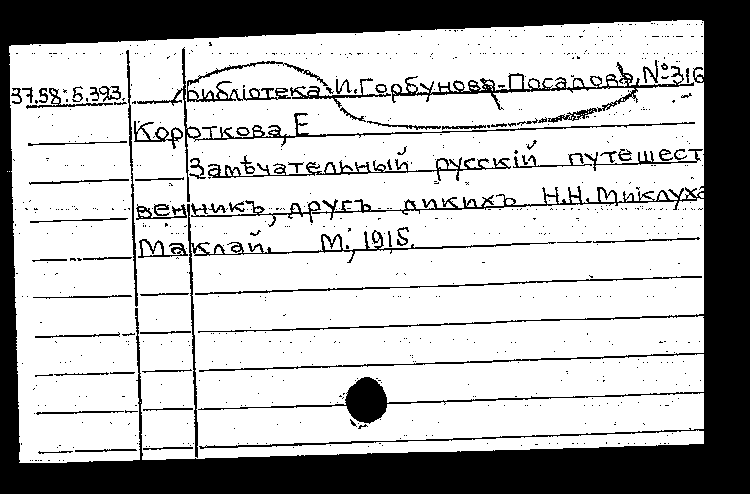 37.58:5.393. Библіотека И. Горбунова-Посадовъ, № 316
Короткова, Е
Замѣчательный русскій путешест
венникъ, другъ дикихъ Н.Н. Миклуха
Маклай. М., 1915.